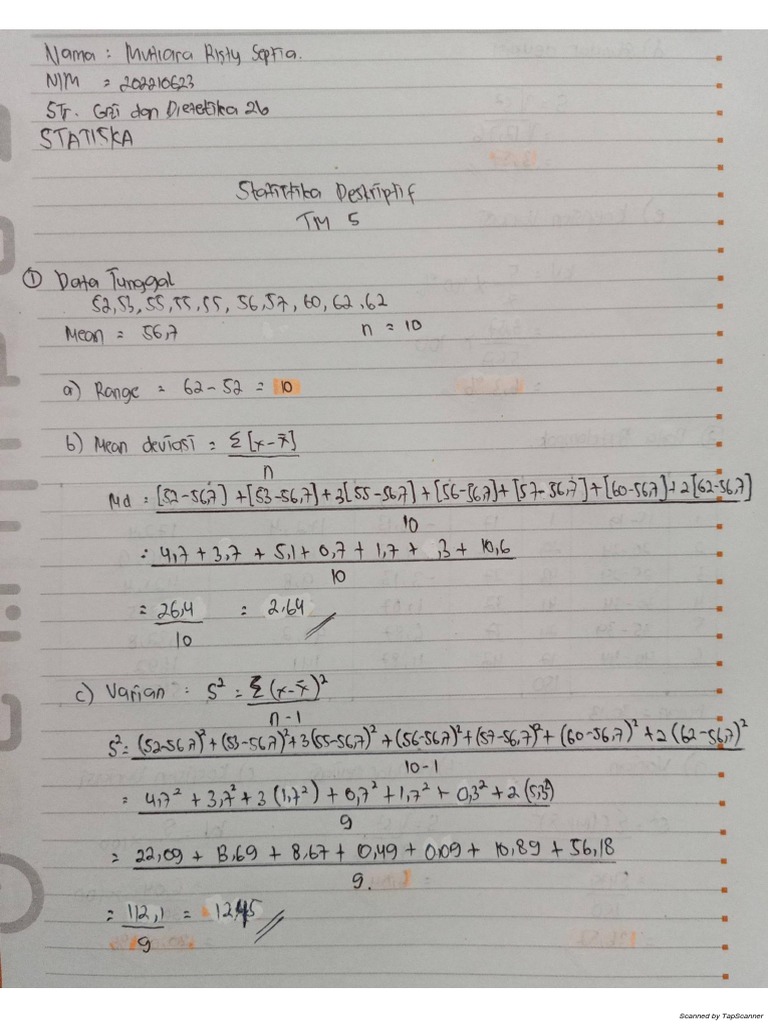 Nama : Mutiara Risty Septia.
NIM = 202210623
Str. Gizi dan Dietetika 2b
STATISKA
Statistika Deskriptif
TM 5
① Data Tunggal
52, 53, 55, 55, 55, 56, 57, 60, 62, 62
Mean = 56,7 n = 10
a) Range = 62 - 52 = 10
b) Mean deviasi = Σ [x - x̄] / n
Md = [52-56,7] + [53-56,7] + 3[55-56,7] + [56-56,7] + [57-56,7] + [60-56,7] + 2[62-56,7] / 10
= 4,7 + 3,7 + 5,1 + 0,7 + 1,7 + ,3 + 10,6 / 10
= 26,4 / 10 = 2,64 //
c) Varian = S² = Σ (x - x̄)² / n-1
S² = (52-56,7)² + (53-56,7)² + 3(55-56,7)² + (56-56,7)² + (57-56,7)² + (60-56,7)² + 2(62-56,7)² / 10-1
= 4,7² + 3,7² + 3(1,7²) + 0,7² + 1,7² + 0,3² + 2(5,3²) / 9
= 22,09 + 13,69 + 8,67 + 10,49 + 0,09 + 10,89 + 56,18 / 9.
= 112,1 / 9 = 12,45 //
Scanned by TapScanner